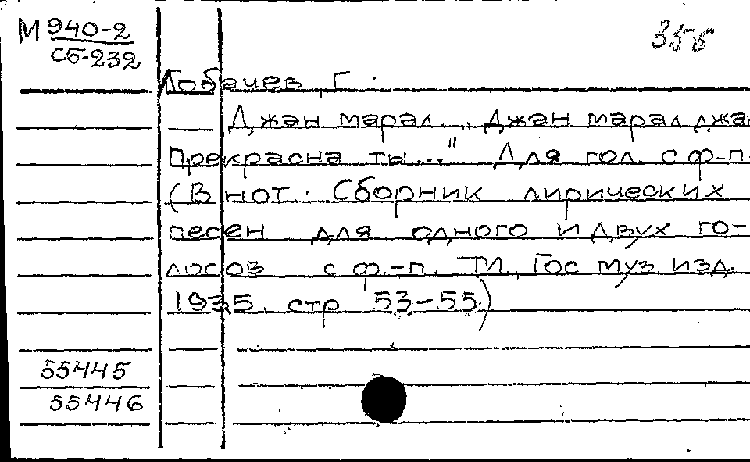 М 940-2
сб-232
356
Лобачев, Г.
Джан марал. „Джан марал джа
прекрасна ты..." Для гол. с ф-п.
(В нот. Сборник лирических
песен для одного и двух го-
лосов с ф.-п. М., Гос муз изд.
1935, стр 53-55)
55445
55446